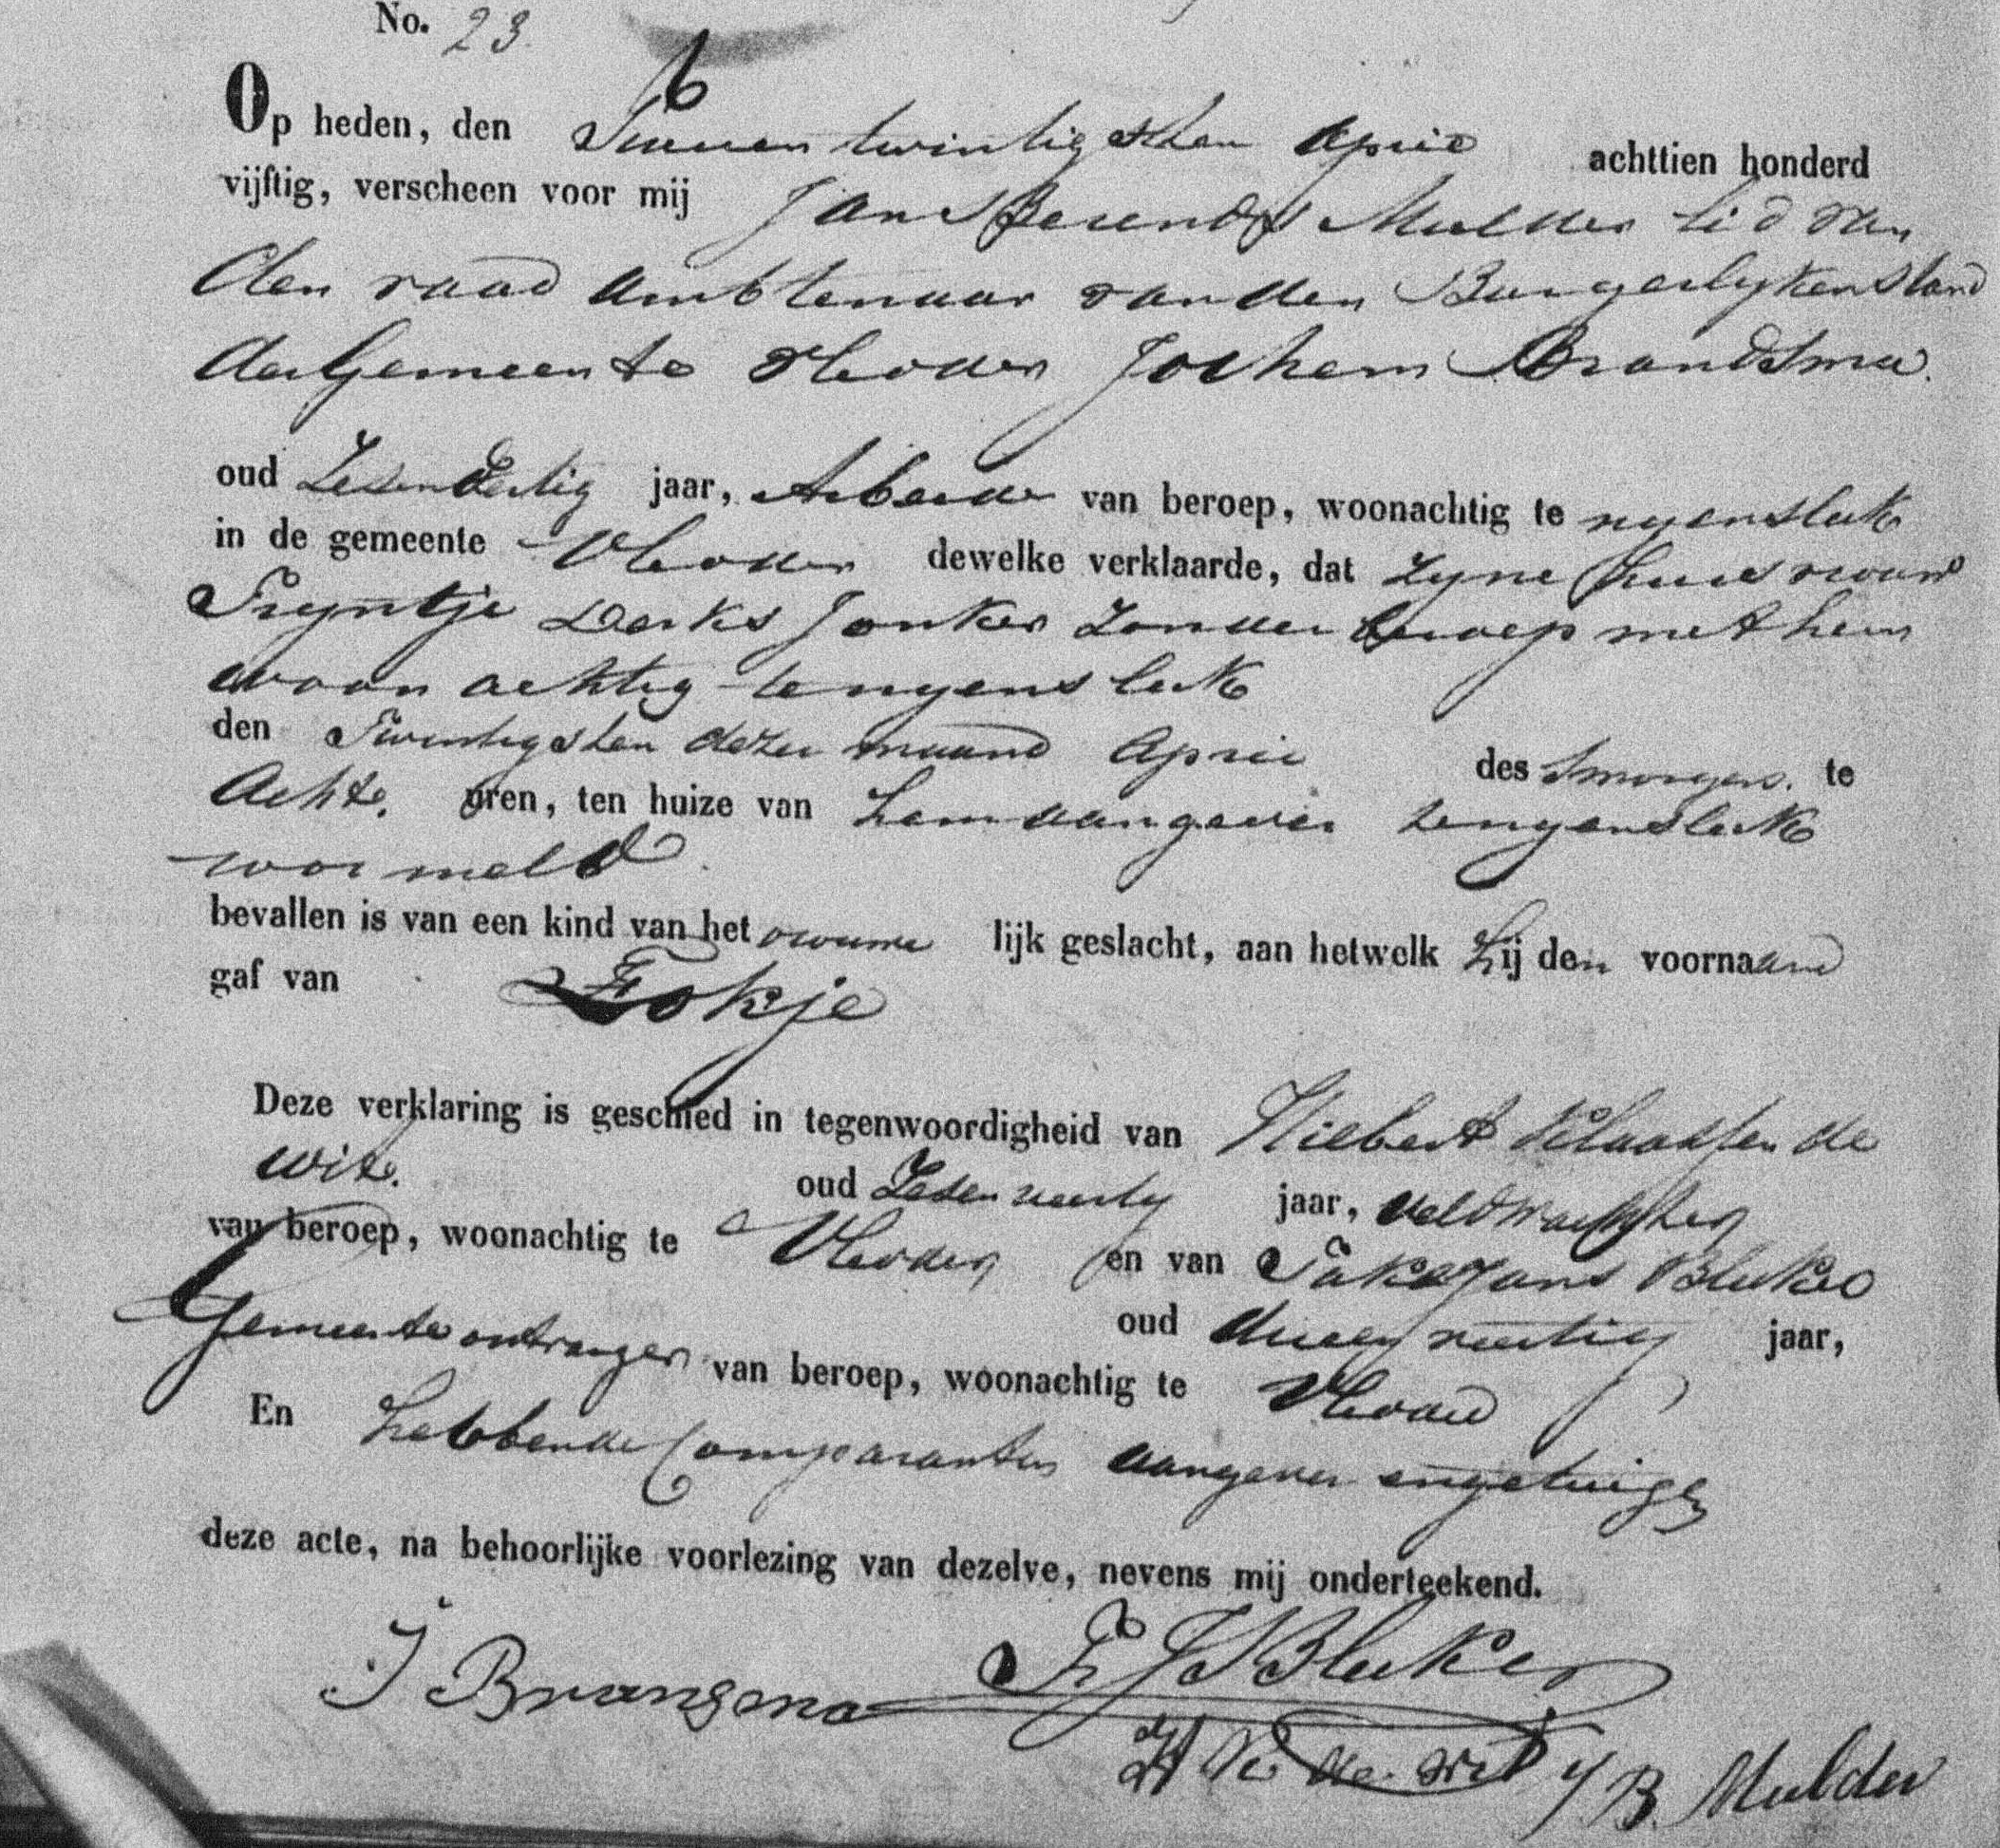 No. 23.
Op heden, den Tweeen twintigsten April achttien honderd
vijftig, verscheen voor mij Jan Berends Mulder lid van
den raad ambtenaar van den Burgerlyken Stand
der Gemeente Vledder Jochem Brandsma.
oud Zesendertig jaar, Arbeider van beroep, woonachtig te nyensleek
in de gemeente Vledder dewelke verklaarde, dat zyne huisvrouw
Tryntje Derks Jonker zonder beroep met hem
woonachtig te nyensleek
den Twintigsten dezer maand April des smorgens. te
Achte. uren, ten huize van hem aangever te nyensleek
voormeld
bevallen is van een kind van het vrouwe lijk geslacht, aan hetwelk hij den voornaam
gaf van Fokje
Deze verklaring is geschied in tegenwoordigheid van Hilbert Klaassen de
wit. oud Zesenveertig jaar, veldwachter
van beroep, woonachtig te Vledder en van Fake Jans Bleeker
Gemeente ontvanger oud veertig jaar,
van beroep, woonachtig te Vledder
En hebbende Comparanten aangever en getuigen
deze acte, na behoorlijke voorlezing van dezelve, nevens mij onderteekend.
J Brangsma F J Bleeker
H K de wit J B. Mulder